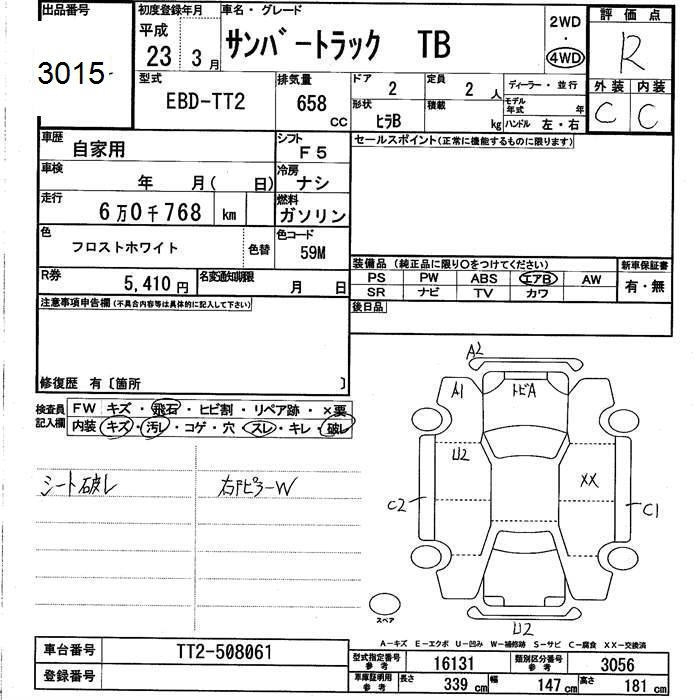 出品番号
3015-
初度登録年月
平成
23 3 月
車名・グレード
サンバートラック TB
2WD
・
4WD
評価点
R
外装 内装
C C
型式
EBD-TT2
排気量
658
cc
ドア
2
定員
2 人
形状
ヒラB
積載
kg
ディーラー・並行
モデル
年式
年
ハンドル 左・右
車歴
自家用
シフト
F5
セールスポイント(正常に機能するものに限ります)
車検
年 月( 日)
冷房
ナシ
走行
6万0千768 km
燃料
ガソリン
色
フロストホワイト
色替
色コード
59M
R券
5,410 円
名変通知期限
月 日
装備品 (純正品に限り○をつけてください)
新車保証書
PS PW ABS エアB AW
SR ナビ TV カワ
有・無
後日品
注意事項申告欄(不具合内容等は具体的に記入して下さい)
修復歴 有〔箇所 〕
検査員
記入欄
FW キズ・飛石・ヒビ割・リペア跡・×要
内装 キズ・汚レ・コゲ・穴・スレ・キレ・破レ
シート破レ
右FピラーW
A2
A1
トビA
U2
XX
C2
C1
U2
スペア
A-キズ E-エクボ U-凹み W-補修跡 S-サビ C-腐食 XX-交換済
車台番号
TT2-508061
登録番号
型式指定番号
参考
16131
類別区分番号
参考
3056
車庫証明用
参考
長さ
339 cm
幅
147 cm
高さ
181 cm